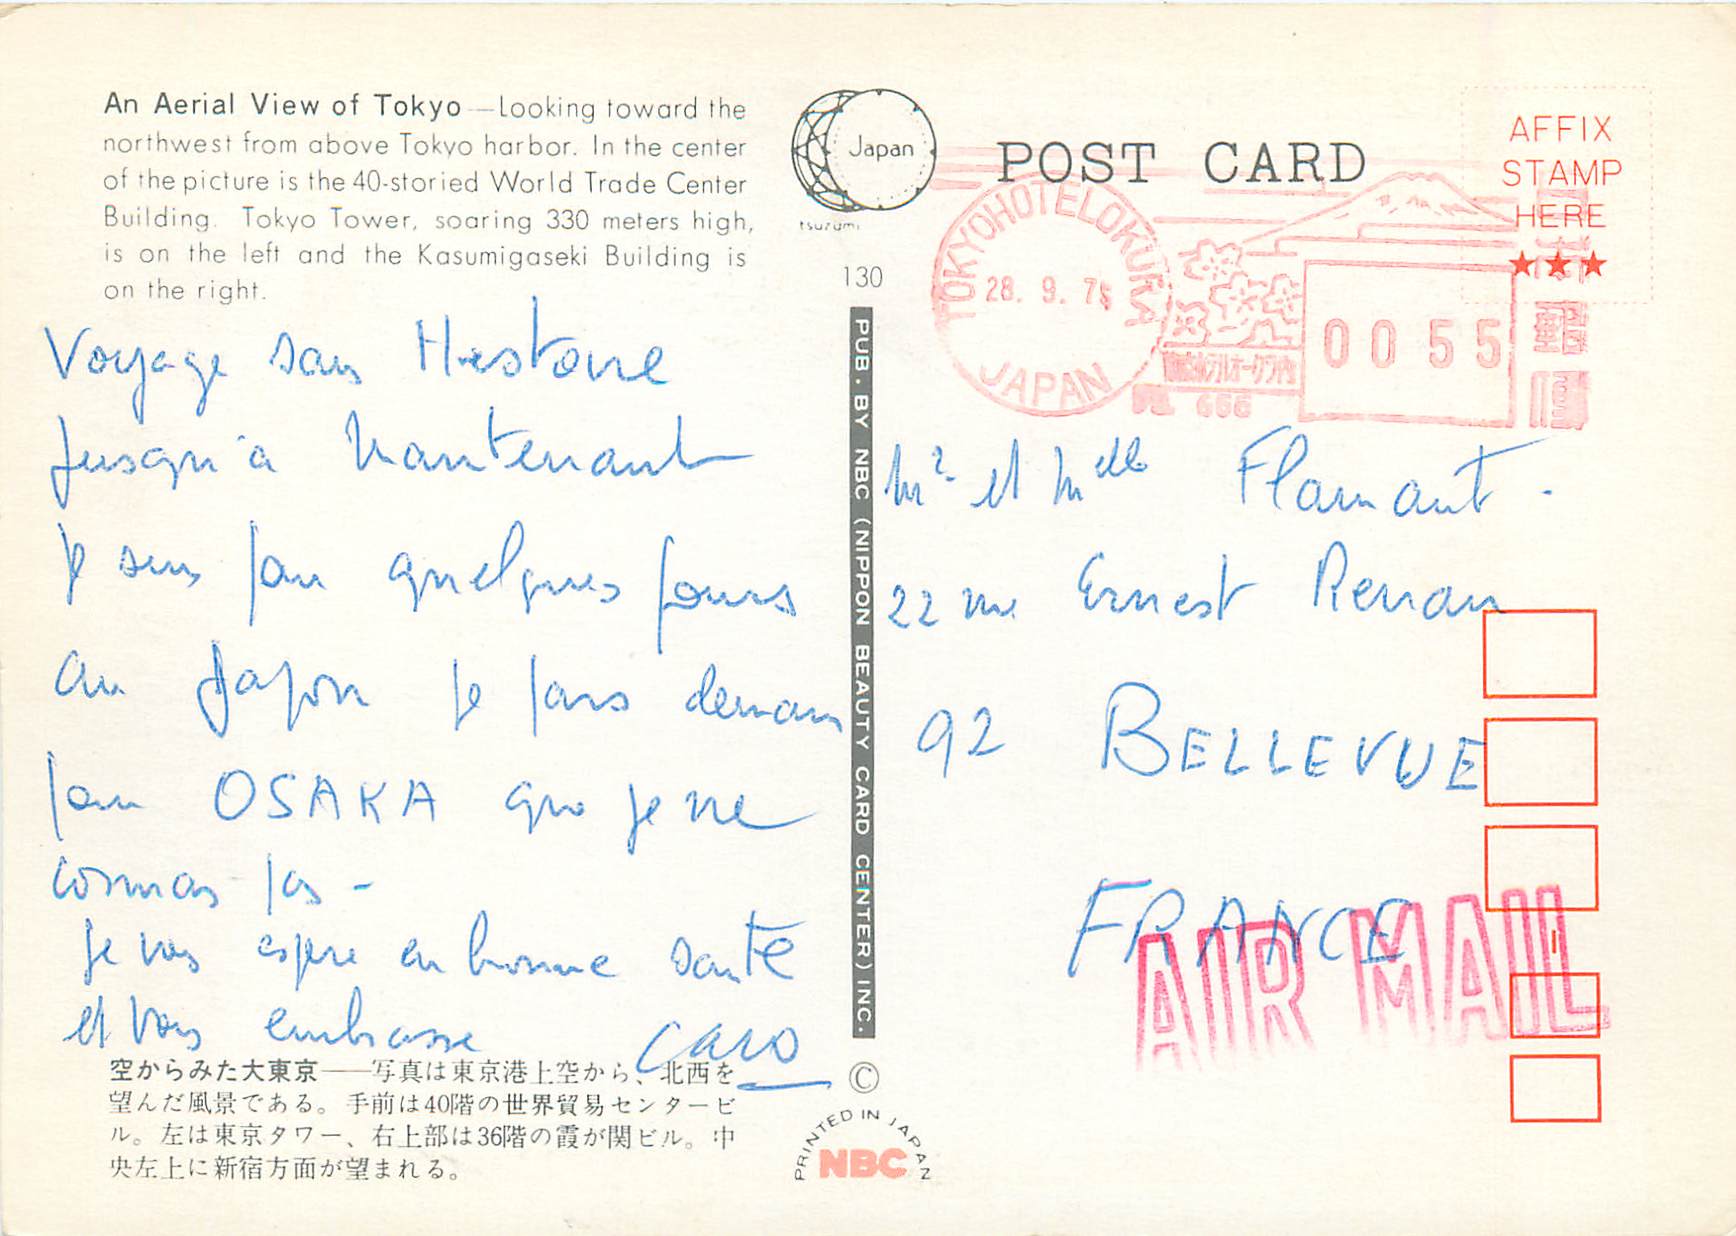 An Aerial View of Tokyo — Looking toward the
northwest from above Tokyo harbor. In the center
of the picture is the 40-storied World Trade Center
Building. Tokyo Tower, soaring 330 meters high,
is on the left and the Kasumigaseki Building is
on the right.
Voyage sans Histoire
jusqu'à maintenant
je suis pour quelques jours
au Japon je pars demain
pour OSAKA que je ne
connais pas -
je vous espère en bonne santé
et vous embrasse Caro
空からみた大東京――写真は東京港上空から、北西を
望んだ風景である。手前は40階の世界貿易センタービ
ル。左は東京タワー、右上部は36階の霞が関ビル。中
央左上に新宿方面が望まれる。
Japan
tsuzumi
130
PUB. BY NBC (NIPPON BEAUTY CARD CENTER) INC.
©
PRINTED IN JAPAN
NBC
POST CARD
AFFIX
STAMP
HERE
★★★
TOKYO HOTEL OKURA
28. 9. 75
JAPAN
0055
666
Mr et Melle Flamant.
22 rue Ernest Renan
92 BELLEVUE
FRANCE
AIR MAIL